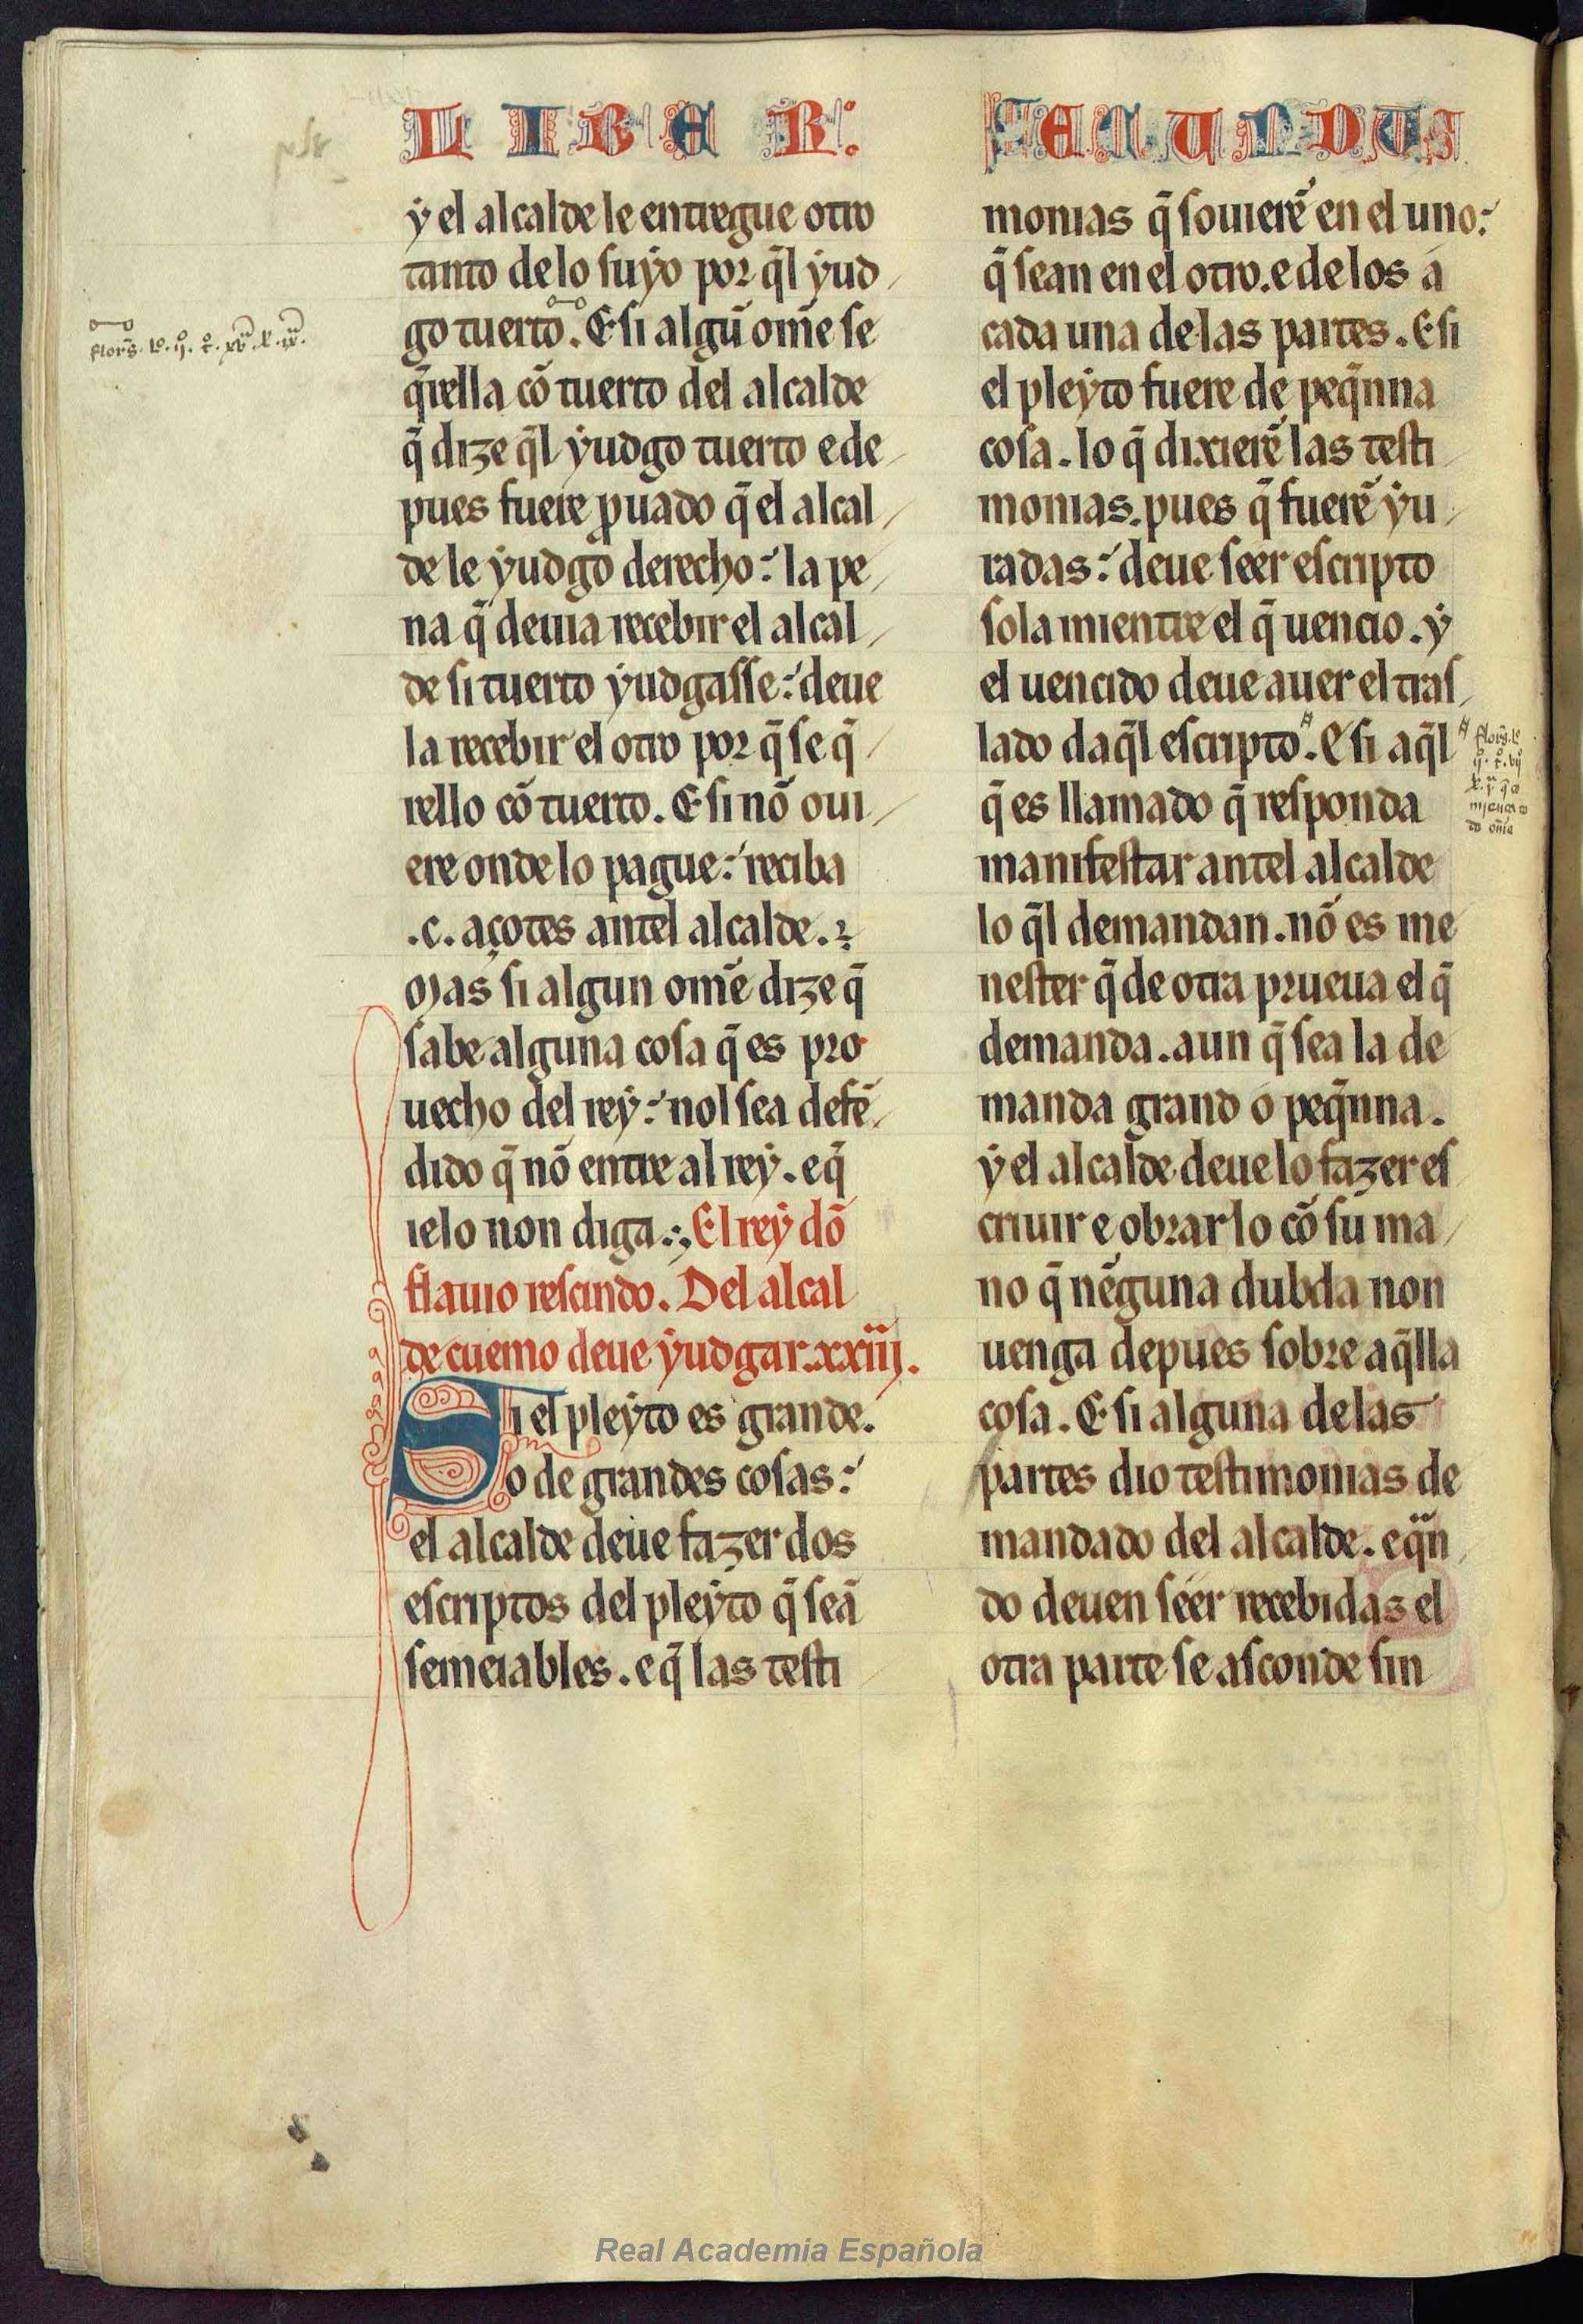 LIBER:
y el alcalde le entregue otro
tanto de lo suyo por q̃l yud
go tuerto. E si algũ om̃e se
q̃rella cõ tuerto del alcalde
q̃ dize q̃l yudgo tuerto e de
pues fuere ꝓuado q̃ el alcal
de le yudgo derecho: la pe
na q̃ deuia recebir el alcal
de si tuerto yudgasse: deue
la recebir el otro por q̃ se q̃
rello cõ tuerto. E si nõ oui
ere onde lo pague: reciba
.c. açotes antel alcalde.
Mas si algun om̃e dize q̃
sabe alguna cosa q̃ es pro
uecho del rey: nol sea defẽ
dido q̃ nõ entre al rey. e q̃
ielo non diga. El rey dõ
flauio rescindo. Del alcal
de cuemo deue yudgar. xxiij.
Si el pleyto es grande.
o de grandes cosas:
el alcalde deue fazer dos
escriptos del pleyto q̃ seã
semeiables. e q̃ las testi
SECUNDUS
monias q̃ souierẽ en el uno:
q̃ sean en el otro. e de los a
cada una de las partes. E si
el pleyto fuere de peq̃nna
cosa. lo q̃ dixierẽ las testi
monias. pues q̃ fuerẽ yu
radas: deue seer escripto
sola mientre el q̃ uencio. y
el uencido deue auer el tras
lado daq̃l escripto. E si aq̃l
q̃ es llamado q̃ responda
manifestar antel alcalde
lo q̃l demandan. nõ es me
nester q̃ de otra prueua el q̃
demanda. aun q̃ sea la de
manda grand o peq̃nna.
y el alcalde deue lo fazer es
criuir e obrar lo cõ su ma
no q̃ nẽguna dubda non
uenga depues sobre aq̃lla
cosa. E si alguna de las
partes dio testimonias de
mandado del alcalde. e qũn
do deuen seer recebidas el
otra parte se asconde sin
Real Academia Española